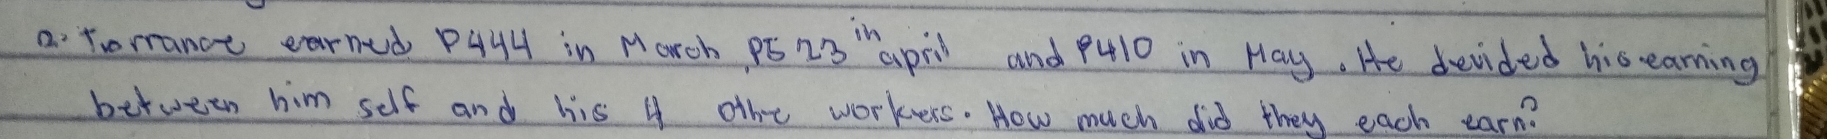 2. Torrance earned P444 in March, P523 in april and P410 in May. He devided his earning
between him self and his 4 othre workers. How much did they each earn?